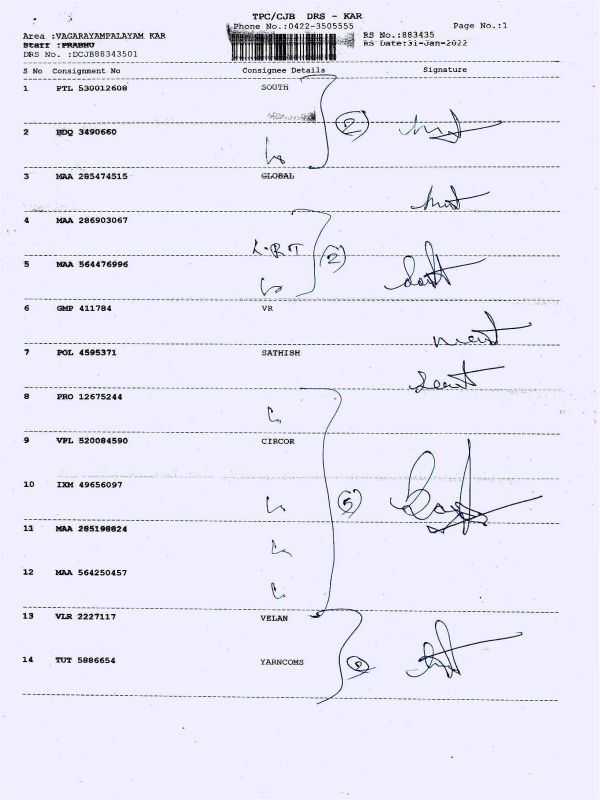 TPC/CJB DRS - KAR
Phone No.:0422-3505555 Page No.:1
Area :VAGARAYAMPALAYAM KAR RS No.:883435
Staff :PRABHU RS Date:31-Jan-2022
DRS No. :DCJB88343501
S No Consignment No Consignee Details Signature
1 PTL 530012608 SOUTH
2
2 BDQ 3490660
3 MAA 285474515 GLOBAL
4 MAA 286903067
L.R.T 2
5 MAA 564476996
6 GMP 411784 VR
7 POL 4595371 SATHISH
8 PRO 12675244
9 VPL 520084590 CIRCOR
10 IXM 49656097
5
11 MAA 285198824
12 MAA 564250457
13 VLR 2227117 VELAN
14 TUT 5886654 YARNCOMS